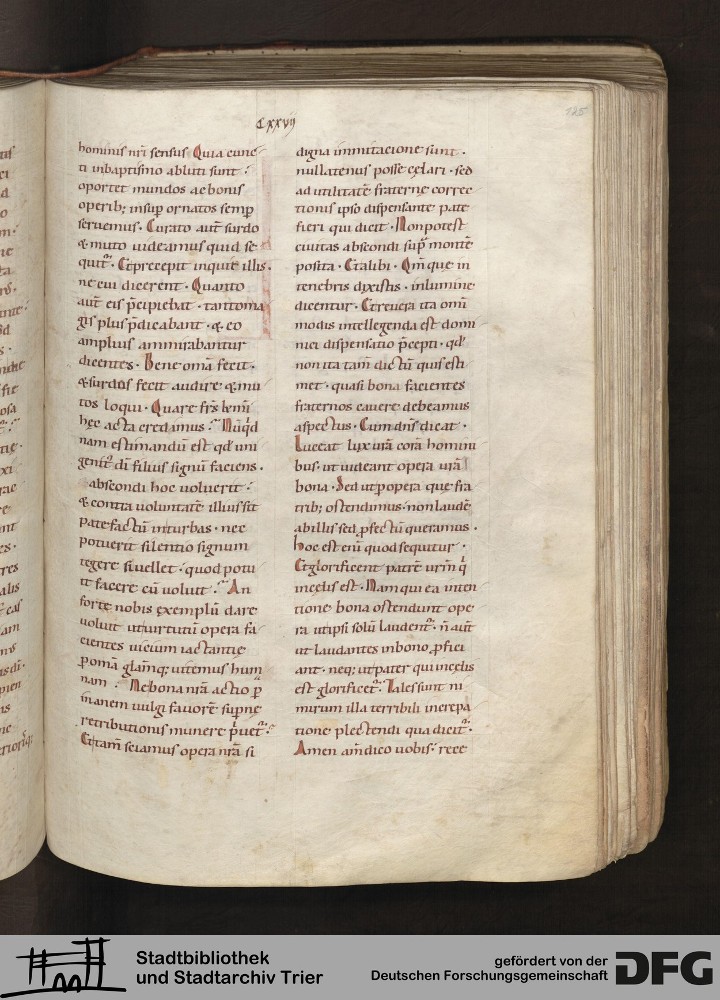 Cxxvij
125
hominis nr̄i sensus Quia cunc
ti inbaptismo abluti sunt :
oportet mundos ac bonis
operib; insup̄ ornatos semp̄
seruemus · Curato aut̄ surdo
& muto uideamus quid se
quit᷑ · Et precepit inquit illis ·
ne cui dicerent · Quanto
aut̄ eis p̄cipiebat · tanto ma
gis plus p̄dicabant · & eo
amplius ammirabantur
dicentes · Bene omā fecit ·
& surdos fecit audire & mu
tos loqui · Quare fr̄s km̄i
hęc acta credamus : Nūq͛d
nam estimandū est qđ uni
genit᷑ dī filius signū faciens ·
abscondi hoc voluerit :
& contra voluntatē illius sit
patefactū in turbas · nec
potuerit silentio signum
tegere si uellet · quod potu
it facere cū voluit : An
forte nobis exemplū dare
voluit ut uirtutū opera fa
cientes uicium iactantię
ꝑ omā glam̄q; uitemus hum
nam : Ne bona nr̄a actio p̄
inanem uulgi fauorē supne
retributionis munere p̄uet᷑ :
Et tam̄ sciamus opera nr̄a si
digna immitacione sunt ·
nullatenus posse cęlari · sed
ad utilitatē fraternę correc
tionis ipso dispensante pate
fieri qui dicit · Non potest
ciuitas abscondi sup̄ montē
posita · Et alibi · Qm̄ que in
tenebris dixistis · in lumine
dicentur · Et reuera ita om̄i
modis intellegenda est domi
nici dispensatio p̄cepti · qđ
non ita tam̄ dictū quis esti
met · quasi bona facientes
fraternos cauere debeamus
aspectus · Cum dn̄s dicat ·
Luceat lux ur̄a corā homini
bus · ut uideant opera ur̄a
bona · Sed ut ꝑ opera que fra
trib; ostendimus · non laudē
ab illis sed ꝓfectū queramus ·
hoc est enī quod sequitur ·
Et glorificent patrē urm̄ q͛
in cęlis est · Nam qui ea inten
tione bona ostendunt ope
ra ut ipsi solū laudent᷑ · n̄ aut̄
ut laudantes in bono ꝓfici
ant · neq; ut pater qui in cęlis
est glorificet᷑ · Tales sunt ni
mirum illa terribili increpa
tione plectendi qua dicit᷑ ·
Amen am̄ dico uobis : rece
Stadtbibliothek
und Stadtarchiv Trier
gefördert von der
Deutschen Forschungsgemeinschaft
DFG